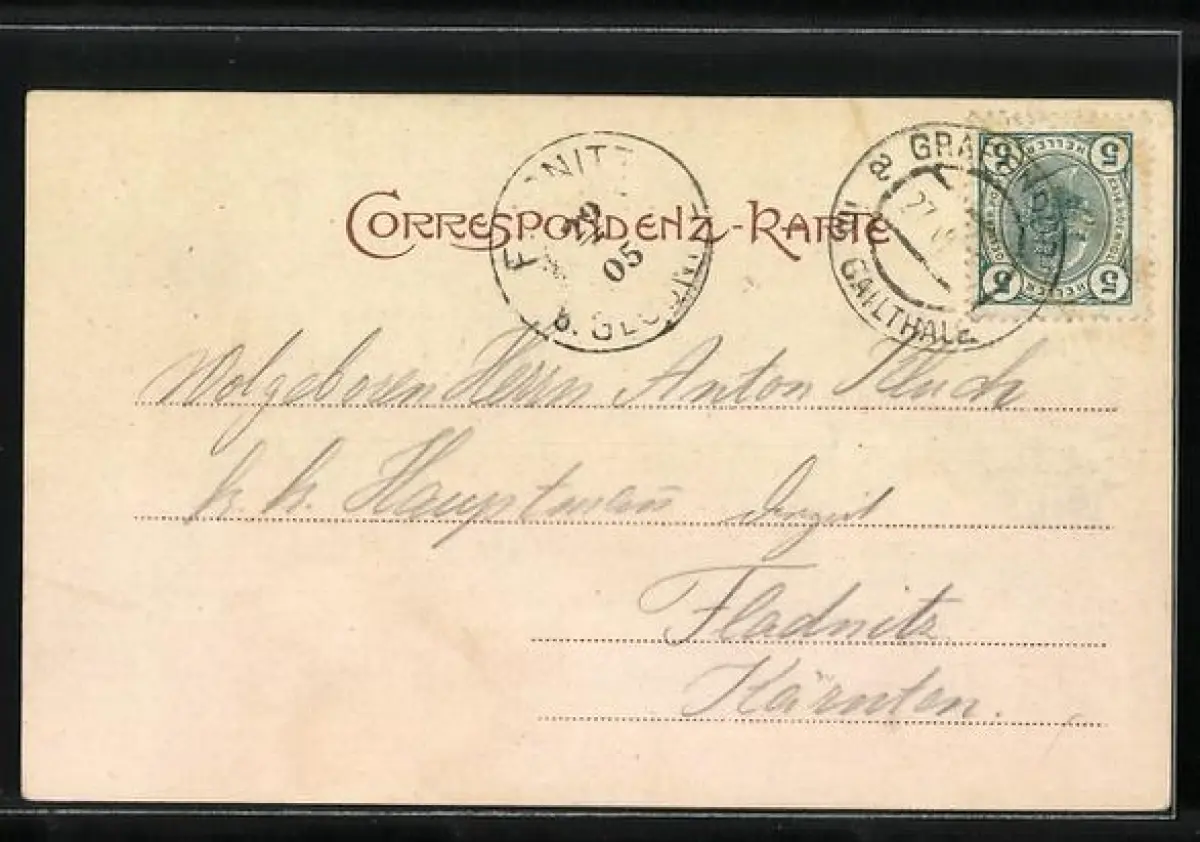 CORRESPONDENZ-KARTE
NITZ
05
GRAF
27
GAILTHALE
5 5
HELLER
5 5
HELLER
Wolgeboren Herrn Anton
k. k. Hauptmann
Fladnitz
Kärnten.